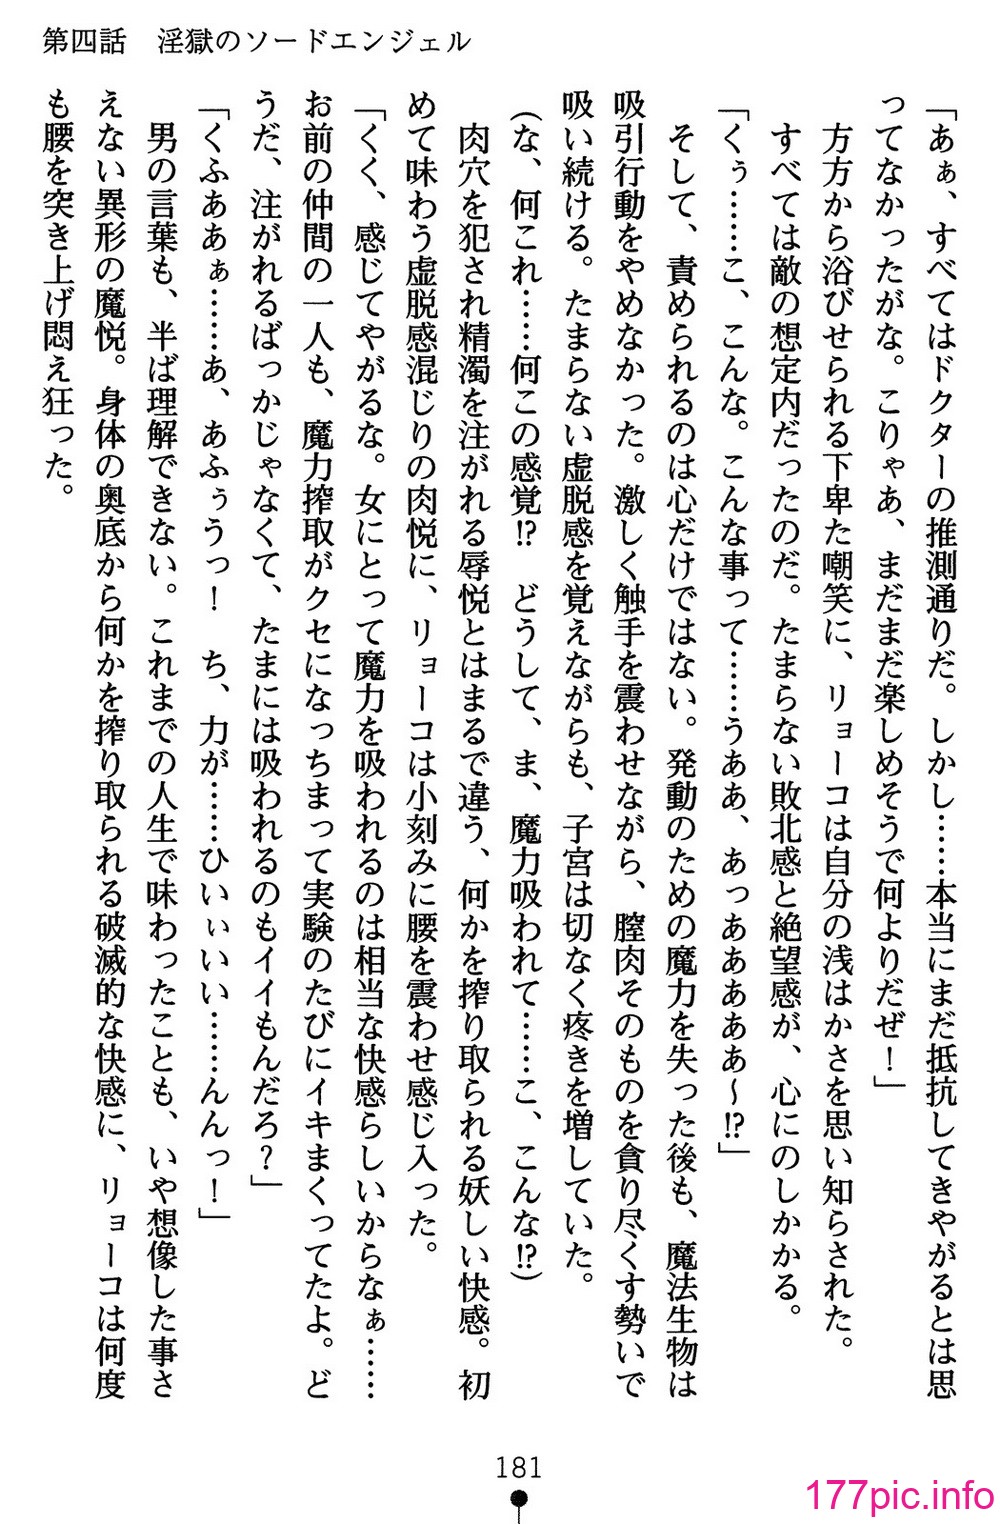 第四話　淫獄のソードエンジェル
「あぁ、すべてはドクターの推測通りだ。しかし……本当にまだ抵抗してきやがるとは思
ってなかったがな。こりゃあ、まだまだ楽しめそうで何よりだぜ！」
　方方から浴びせられる下卑た嘲笑に、リョーコは自分の浅はかさを思い知らされた。
　すべては敵の想定内だったのだ。たまらない敗北感と絶望感が、心にのしかかる。
「くぅ……こ、こんな。こんな事って……うああ、あっああああぁ～⁉」
　そして、責められるのは心だけではない。発動のための魔力を失った後も、魔法生物は
吸引行動をやめなかった。激しく触手を震わせながら、膣肉そのものを貪り尽くす勢いで
吸い続ける。たまらない虚脱感を覚えながらも、子宮は切なく疼きを増していた。
（な、何これ……何この感覚⁉　どうして、ま、魔力吸われて……こ、こんな⁉）
　肉穴を犯され精濁を注がれる辱悦とはまるで違う、何かを搾り取られる妖しい快感。初
めて味わう虚脱感混じりの肉悦に、リョーコは小刻みに腰を震わせ感じ入った。
「くく、感じてやがるな。女にとって魔力を吸われるのは相当な快感らしいからなぁ……
お前の仲間の一人も、魔力搾取がクセになっちまって実験のたびにイキまくってたよ。ど
うだ、注がれるばっかじゃなくて、たまには吸われるのもイイもんだろ？」
「くふああぁ……あ、あふぅうっ！　ち、力が……ひいぃいい……んんっ！」
　男の言葉も、半ば理解できない。これまでの人生で味わったことも、いや想像した事さ
えない異形の魔悦。身体の奥底から何かを搾り取られる破滅的な快感に、リョーコは何度
も腰を突き上げ悶え狂った。
181
177pic.info